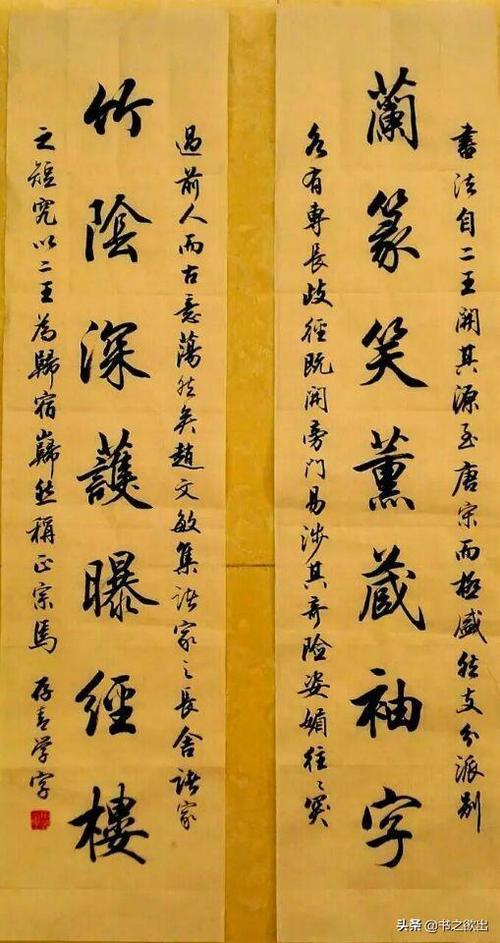 書法自二王開其源至唐宋而極盛然支分派別
蘭篆笑薰藏袖字
各有專長歧徑既開旁門易涉其奇險姿媚往々突
過前人而古意蕩然矣趙文敏集諸家之長舍諸家
竹陰深護曝經樓
之短究以二王為歸宿巋然稱正宗焉 存青学字
头条 @书之欲出